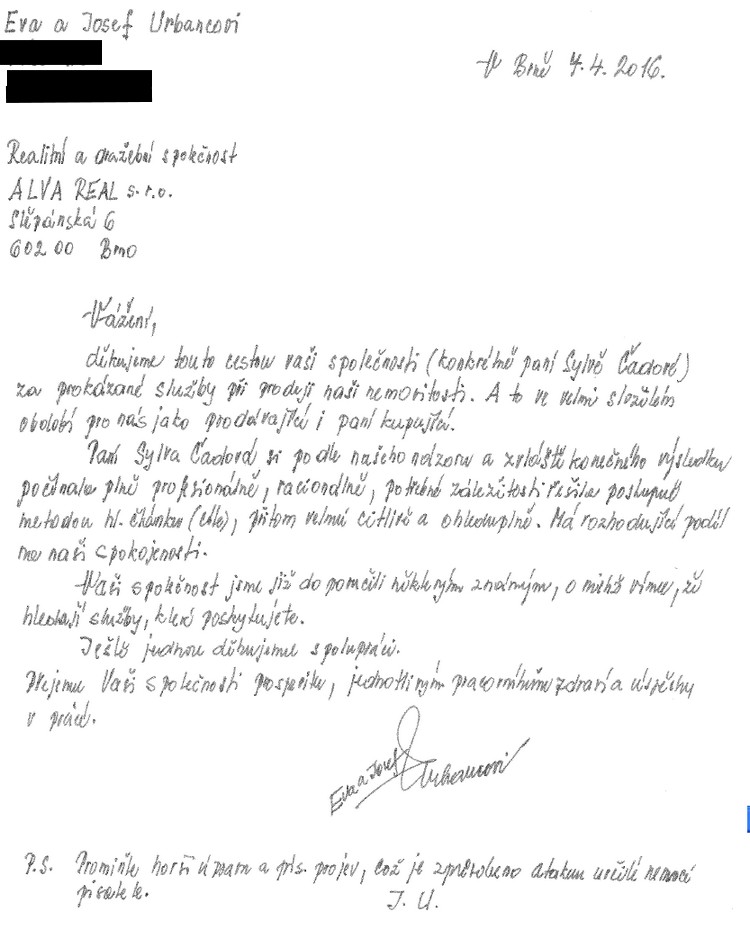 Eva a Josef Urbancovi
V Brně 7.4.2016.
Realitní a dražební společnost
ALVA REAL s.r.o.
Štěpánská 6
602 00 Brno
Vážení,
děkujeme touto cestou vaší společnosti (konkrétně paní Sylvě Čadové)
za prokázané služby při prodeji naší nemovitosti. A to ve velmi složitém
období pro nás jako prodávající i paní kupující.
Paní Sylva Čadová si podle našeho názoru a zvláště konečného výsledku
počínala plně profesionálně, racionálně, potřebné záležitosti řešila postupně
metodou hl. článku (cíle), přitom velmi citlivě a ohleduplně. Má rozhodující podíl
na naší spokojenosti.
Vaši společnost jsme již doporučili některým známým, o nichž víme, že
hledají služby, které poskytujete.
Ještě jednou děkujeme spolupráci.
Přejeme Vaší společnosti prosperitu, jednotlivým pracovníkům zdraví a úspěchy
v práci.
Eva a Josef Urbancovi
P.S. Promiňte horší úpravu a pís. projev, což je způsobeno atakou určité nemoci
pisatele. J. U.